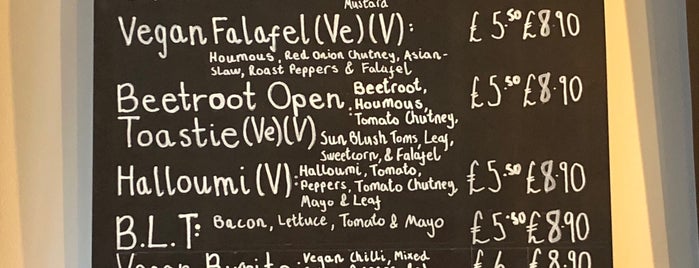 Mustard
Vegan Falafel (Ve) (V): £5.50 £8.90
Houmous, Red Onion Chutney, Asian-
Slaw, Roast Peppers & Falafel
Beetroot Open Beetroot, £5.50 £8.90
Houmous,
Tomato Chutney,
Toastie (Ve)(V) Sun Blush Toms, Leaf,
Sweetcorn, & Falafel
Halloumi (V): Halloumi, Tomato, £5.50 £8.90
Peppers, Tomato Chutney,
Mayo & Leaf
B.L.T: Bacon, Lettuce, Tomato & Mayo £5.50 £8.90
Vegan Burrito Vegan Chilli, Mixed £6 £8.90